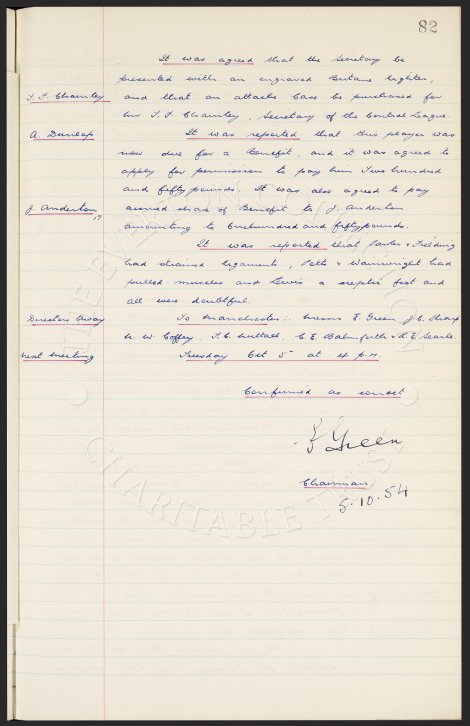 82
It was agreed that the Secretary be
presented with an engraved Butane lighter,
T. F. Charnley and that an attache case be purchased for
Mr T. F. Charnley, Secretary of the Central League.
A. Dunlop It was reported that this player was
now due for a Benefit, and it was agreed to
apply for permission to pay him Two hundred
and fifty pounds. It was also agreed to pay
J. Anderton accrued share of Benefit to J. Anderton
amounting to One hundred and fifty pounds.
It was reported that Parker & Fielding
had strained ligaments, Potts & Wainwright had
pulled muscles and Lewis a septic foot and
all were doubtful.
Directors Away To Manchester: Messrs E. Green, J. C. Sharp
N. W. Coffey, T. C. Nuttall, C. E. Balmforth & R. E. Searle.
Next Meeting Tuesday Oct 5th at 4 p.m.
Confirmed as correct
E Green
Chairman
5.10.54
THE EVERTON COLLECTION
CHARITABLE TRUST